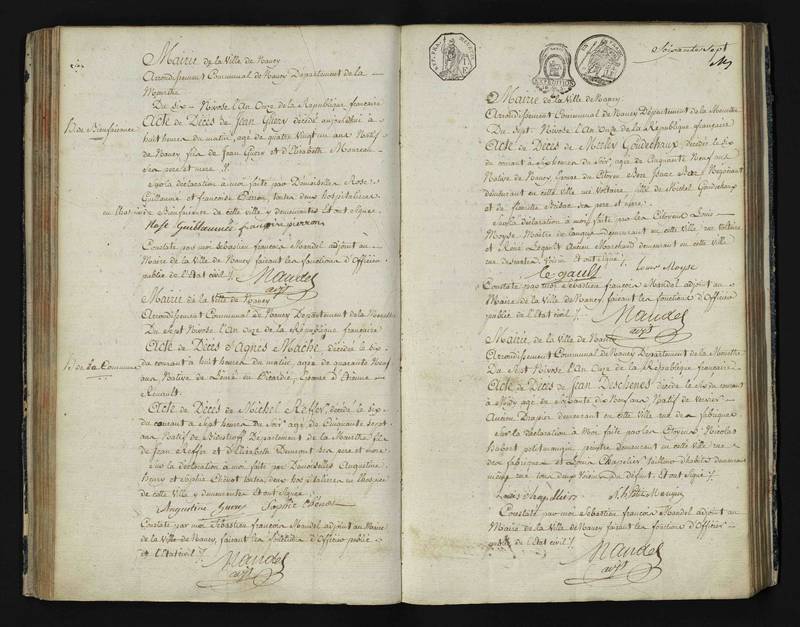 Mairie de la Ville de Nancy
Arrondissement Communal de Nancy Département de la
Meurthe
Du Six Nivose l'An Onze de la République française
Acte de Décès de Jean Guery décédé aujourd'hui à
huit heures du matin, agé de quatre vingt un ans Natif
de Nancy fils de Jean Guery et d'Elisabeth
ses pere et mere
B. de Bienfaisance
Sur la déclaration à moi faite par Demoiselles Rose
Guillaume et françoise Pierron toutes deux hospitalieres
de Bienfaisance de cette ville y demeurantes Et ont Signé
Rose Guillaumée françoise pierron
Constaté par moi Sébastien françois Mandel adjoint au
Maire de la Ville de Nancy faisant les fonctions d'Officier
public de l'Etat civil
Mandel
adjt
Mairie de la Ville de Nancy
Arrondissement Communal de Nancy Département de la Meurthe
Du Sept Nivose l'An Onze de la République française
Acte de Décès d'Agnès Mache, décédée le Six
du courant à huit heures du matin, agée de quarante Neuf
ans Native de en Picardie, Epouse d'Etienne
Renault
H. de la Commune
Acte de Décès de Michel Reffer, décédé le Six
du courant à Sept heures du Soir, agé de Cinquante Sept
ans Natif de Département de la Meurthe fils
de Jean Reffer et d'Elisabeth Dumont Ses pere et mere
Sur la déclaration à moi faite par Demoiselles Augustine
Henry et Sophie toutes deux hospitalieres en l'hospice
de cette Ville y demeurantes Et ont Signé
Augustine Sophie
Constaté par moi Sébastien françois Mandel adjoint au Maire
de la Ville de Nancy, faisant les fonctions d'Officier public
de l'Etat civil
Mandel
adjt
Soixante Sept
Mairie de la Ville de Nancy
Arrondissement Communal de Nancy Département de la Meurthe
Du Sept Nivose l'An Onze de la République française
Acte de Décès de Goudchaux, décédée le Six
du courant à Six heures du Soir, agée de Cinquante Neuf ans
Native de Nancy, Epouse du Citoyen Ber Isaac Ber Négociant
demeurant en cette Ville rue Voltaire, fille de Michel Goudchaux
et de ses pere et mere
Sur la déclaration à moi faite par les Citoyens Louis
Moyse Maitre de langue demeurant en cette Ville rue Voltaire
et René Legault Ancien Marchand demeurant en cette Ville
rue descartes Voisin Et ont Signé
le gault Louis Moyse
Constaté par moi Sébastien françois Mandel adjoint au
Maire de la Ville de Nancy, faisant les fonctions d'Officier
public de l'Etat civil
Mandel
adjt
Mairie de la Ville de Nancy
Arrondissement Communal de Nancy Département de la Meurthe
Du Sept Nivose l'An Onze de la République française
Acte de Décès de Jean Deschenes décédé le Six du courant
à Midy agé de Soixante dix Neuf ans Natif de
Ancien Drapier demeurant en cette Ville rue de la fabrique
Sur la déclaration à moi faite par les Citoyens Nicolas
Hubert petitmangin peintre demeurant en cette Ville rue
des fabriques et Louis Chapelier Tailleur d'habits demeurant
même rue tous deux Voisins du défunt Et ont Signé
Louis Chapellier
Constaté par moi Sébastien françois Mandel adjoint au
Maire de la Ville de Nancy faisant les fonctions d'Officier
public de l'Etat civil
Mandel
adjt